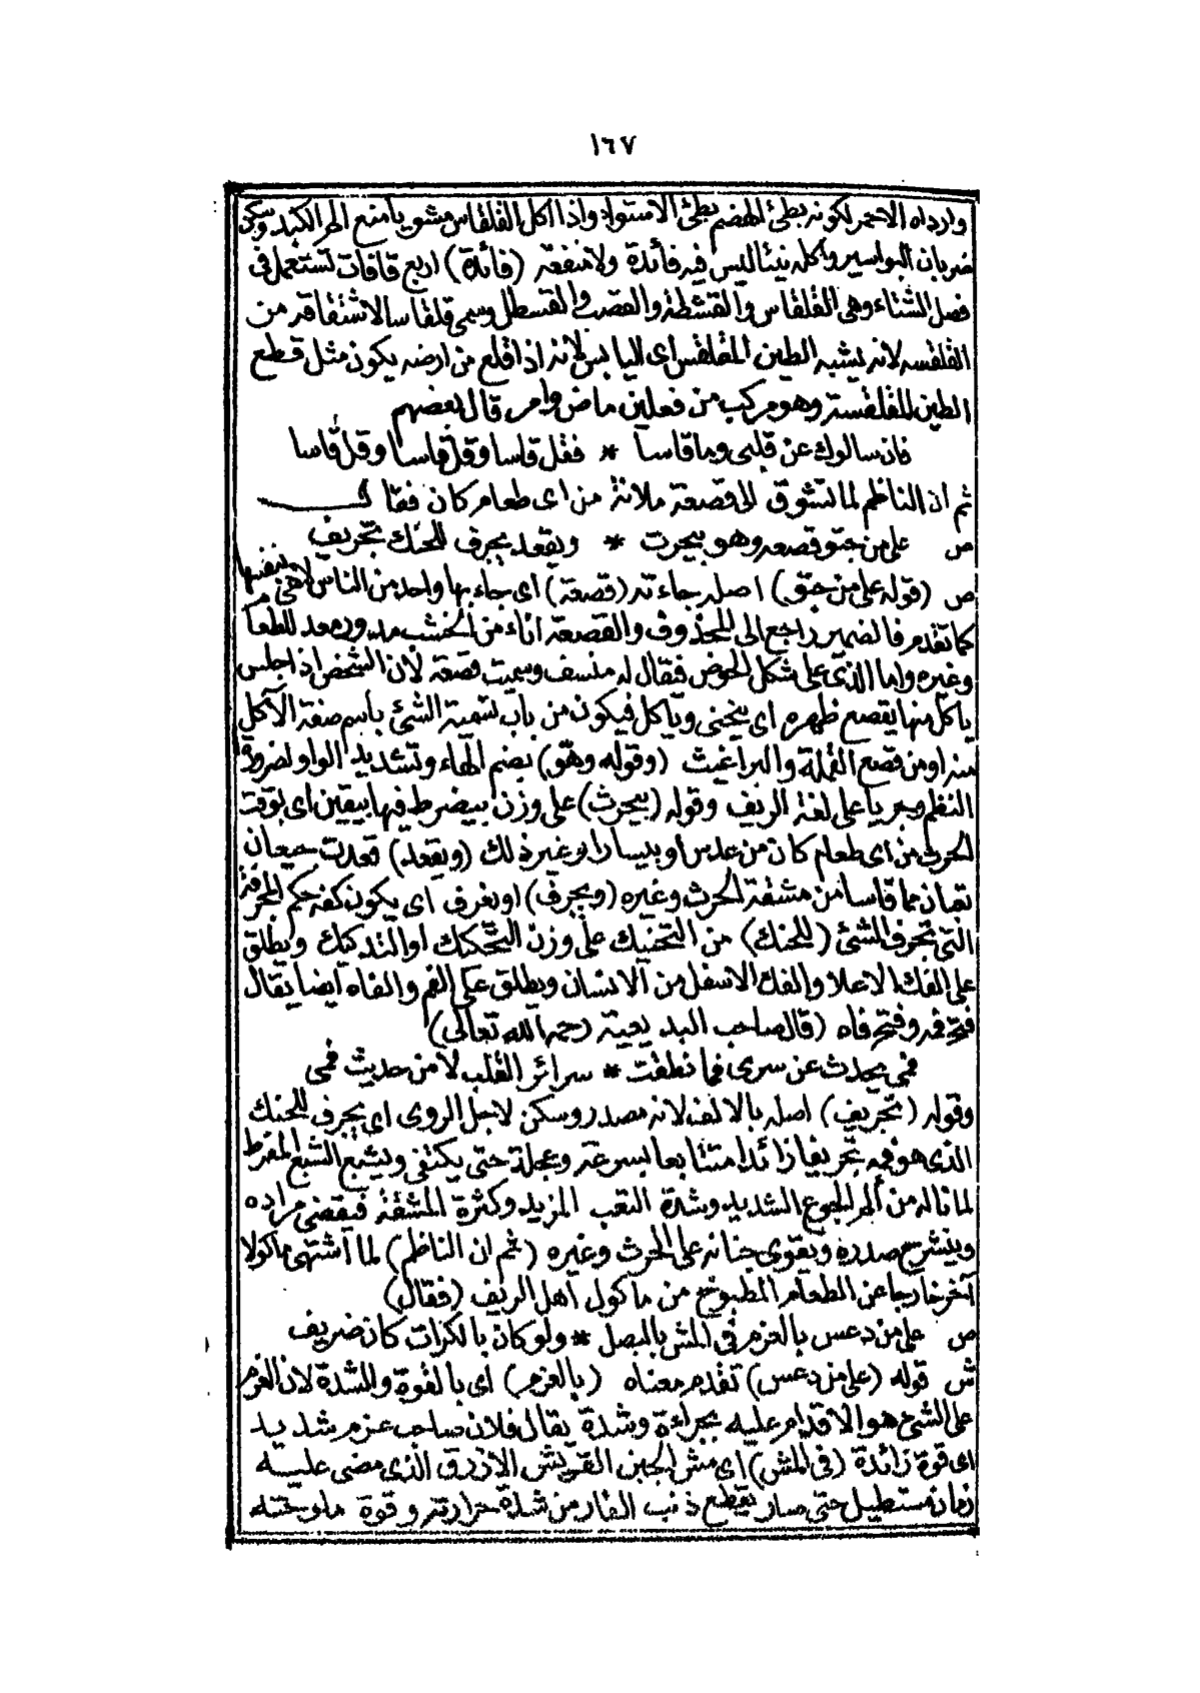 ١٦٧
وارداه الاحمر لكونه بطئ الهضم بطئ الاستواء واذا اكل القلقاس مشويا منع الم الكبد وسكن
ضربان البواسير واكله نيئا ليس فيه فائدة ولا منفعة (فائدة) اربع قافات تستعمل فى
فصل الشتاء وهى القلقاس والقشطة والقصب والقسطل وسمى قلقاسا لاشتقاقه من
القلقسه لانه يشبه الطين المقلقس اى اليابس لانه اذا قلع من ارضه يكون مثل قطع
الطين المقلقسة وهو مركب من فعلين ماض وامر قال بعضهم
فان سالوك عن قلبى وما قاسا * فقل قاسا وقل قاسا وقل قاسا
ثم ان الناظم لما تشوق الى قصعة ملانة من اى طعام كان فقال
ص على من جتو قصعه وهو بيحرت * ويقعد يجرف للحنك تجريف
ص (قوله على من جتو) اصله جاءته (قصعة) اى جاء بها واحد من الناس لا هى بنفسها
كما تقدم فالضمير راجع الى المحذوف والقصعة اناء من الخشب مدور معد للطعام
وغيره واما الذى على شكل الحوض فيقال له منسف وسميت قصعة لان الشخص اذا جلس
ياكل منها يقصع ظهره اى ينحنى وياكل فيكون من باب تسمية الشئ باسم صفة الآكل
منه او من قصع القملة والبراغيث (وقوله وهو) بضم الهاء وتشديد الواو لضرورة
النظم وجريا على لغة الريف وقوله (بيحرث) على وزن بيضرط فيها بيقين اى بوقت
الحرث من اى طعام كان من عدس أو بيسار او غير ذلك (ويقعد) قعدت جيعان
تعبان مما قاسا من مشقة الحرث وغيره (ويجرف) او يغرف اى يكون كفه حكم المجرفة
التى تجرف الشئ (للحنك) من التحنيك على وزن التحكيك او التدكيك ويطلق
على الفك الاعلا والفك الاسفل من الانسان ويطلق على الفم والفاه ايضا يقال
فتح فمه وفتح فاه (قال صاحب البديعية رحمه الله تعالى)
فمى يحدث عن سرى فما نطقت * سرائر القلب الا من حديث فمى
وقوله (تجريف) اصله بالالف لانه مصدر وسكن لاجل الروى اى يجرف للحنك
الذى هو فمه تجريفا زائدا متتابعا بسرعة وعجلة حتى يكتفى ويشبع الشبع المفرط
لما ناله من ألم الجوع الشديد وشدة التعب المزيد وكثرة المشقة فيقضى مراده
وينشرح صدره ويقوى جنانه على الحرث وغيره (ثم ان الناظم) لما اشتهى ماكولا
آخر خارجا عن الطعام المطبوخ من ماكول اهل الريف (فقال)
ص على من دعس بالعزم فى المش بالبصل * ولو كان بالكرات كان ضريف
ش قوله (على من دعس) تقدم معناه (بالعزم) اى بالقوة والشدة لان العزم
على الشئ هو الاقدام عليه بجراءة وشدة يقال فلان صاحب عزم شديد
اى قوة زائدة (فى المش) اى مش الجبن القريش الازرق الذى مضى عليه
زمان مستطيل حتى صار يقطع ذنب الفار من شدة حرارته وقوة ملوحته